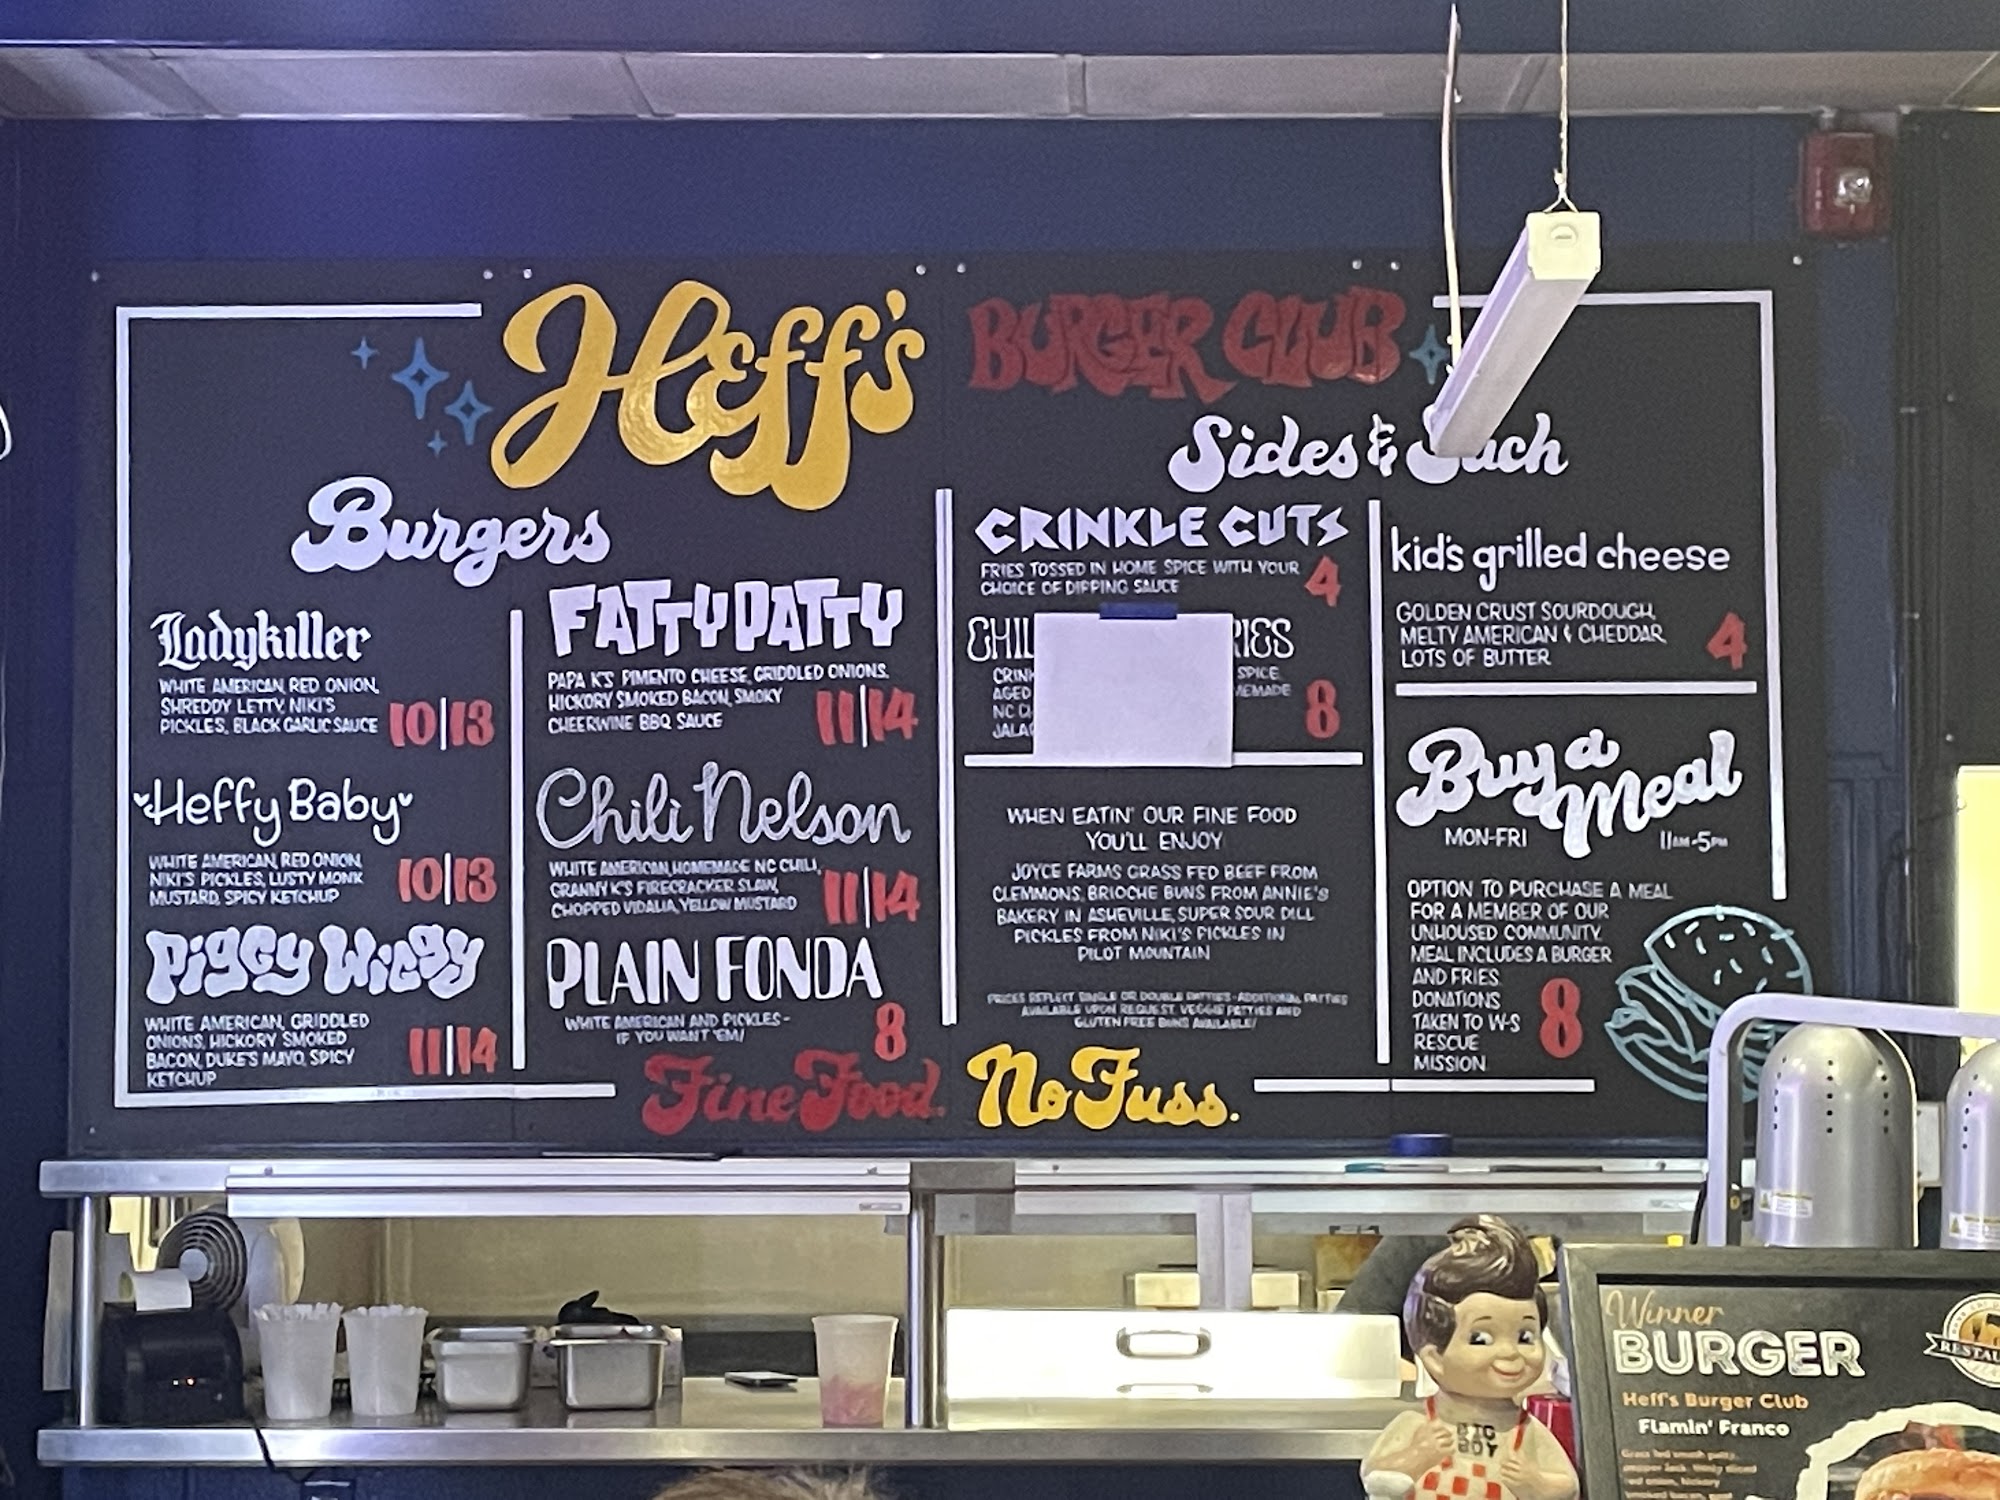 Heff's BURGER CLUB
Burgers
Ladykiller
WHITE AMERICAN, RED ONION,
SHREDDY LETTY, NIKI'S
PICKLES, BLACK GARLIC SAUCE 10|13
Heffy Baby
WHITE AMERICAN, RED ONION,
NIKI'S PICKLES, LUSTY MONK
MUSTARD, SPICY KETCHUP 10|13
Piggy Wiggy
WHITE AMERICAN, GRIDDLED
ONIONS, HICKORY SMOKED
BACON, DUKE'S MAYO, SPICY
KETCHUP 11|14
FATTY PATTY
PAPA K'S PIMENTO CHEESE, GRIDDLED ONIONS,
HICKORY SMOKED BACON, SMOKY
CHEERWINE BBQ SAUCE 11|14
Chili Nelson
WHITE AMERICAN, HOMEMADE NC CHILI,
GRANNY K'S FIRECRACKER SLAW,
CHOPPED VIDALIA, YELLOW MUSTARD 11|14
PLAIN FONDA
WHITE AMERICAN AND PICKLES-
IF YOU WANT 'EM! 8
Sides & Such
CRINKLE CUTS
FRIES TOSSED IN HOME SPICE WITH YOUR
CHOICE OF DIPPING SAUCE 4
SPICE,
AGED
8
WHEN EATIN' OUR FINE FOOD
YOU'LL ENJOY
JOYCE FARMS GRASS FED BEEF FROM
CLEMMONS, BRIOCHE BUNS FROM ANNIE'S
BAKERY IN ASHEVILLE, SUPER SOUR DILL
PICKLES FROM NIKI'S PICKLES IN
PILOT MOUNTAIN
PRICES REFLECT SINGLE OR DOUBLE PATTIES-ADDITIONAL PATTIES
AVAILABLE UPON REQUEST. VEGGIE PATTIES AND
GLUTEN FREE BUNS AVAILABLE!
kid's grilled cheese
GOLDEN CRUST SOURDOUGH,
MELTY AMERICAN & CHEDDAR,
LOTS OF BUTTER 4
Buy a
Meal
MON-FRI 11AM-5PM
OPTION TO PURCHASE A MEAL
FOR A MEMBER OF OUR
UNHOUSED COMMUNITY.
MEAL INCLUDES A BURGER
AND FRIES.
DONATIONS
TAKEN TO W-S
RESCUE
MISSION 8
Fine Food. No Fuss.
BIG
BOY
Winner
BURGER
Heff's Burger Club
Flamin' Franco